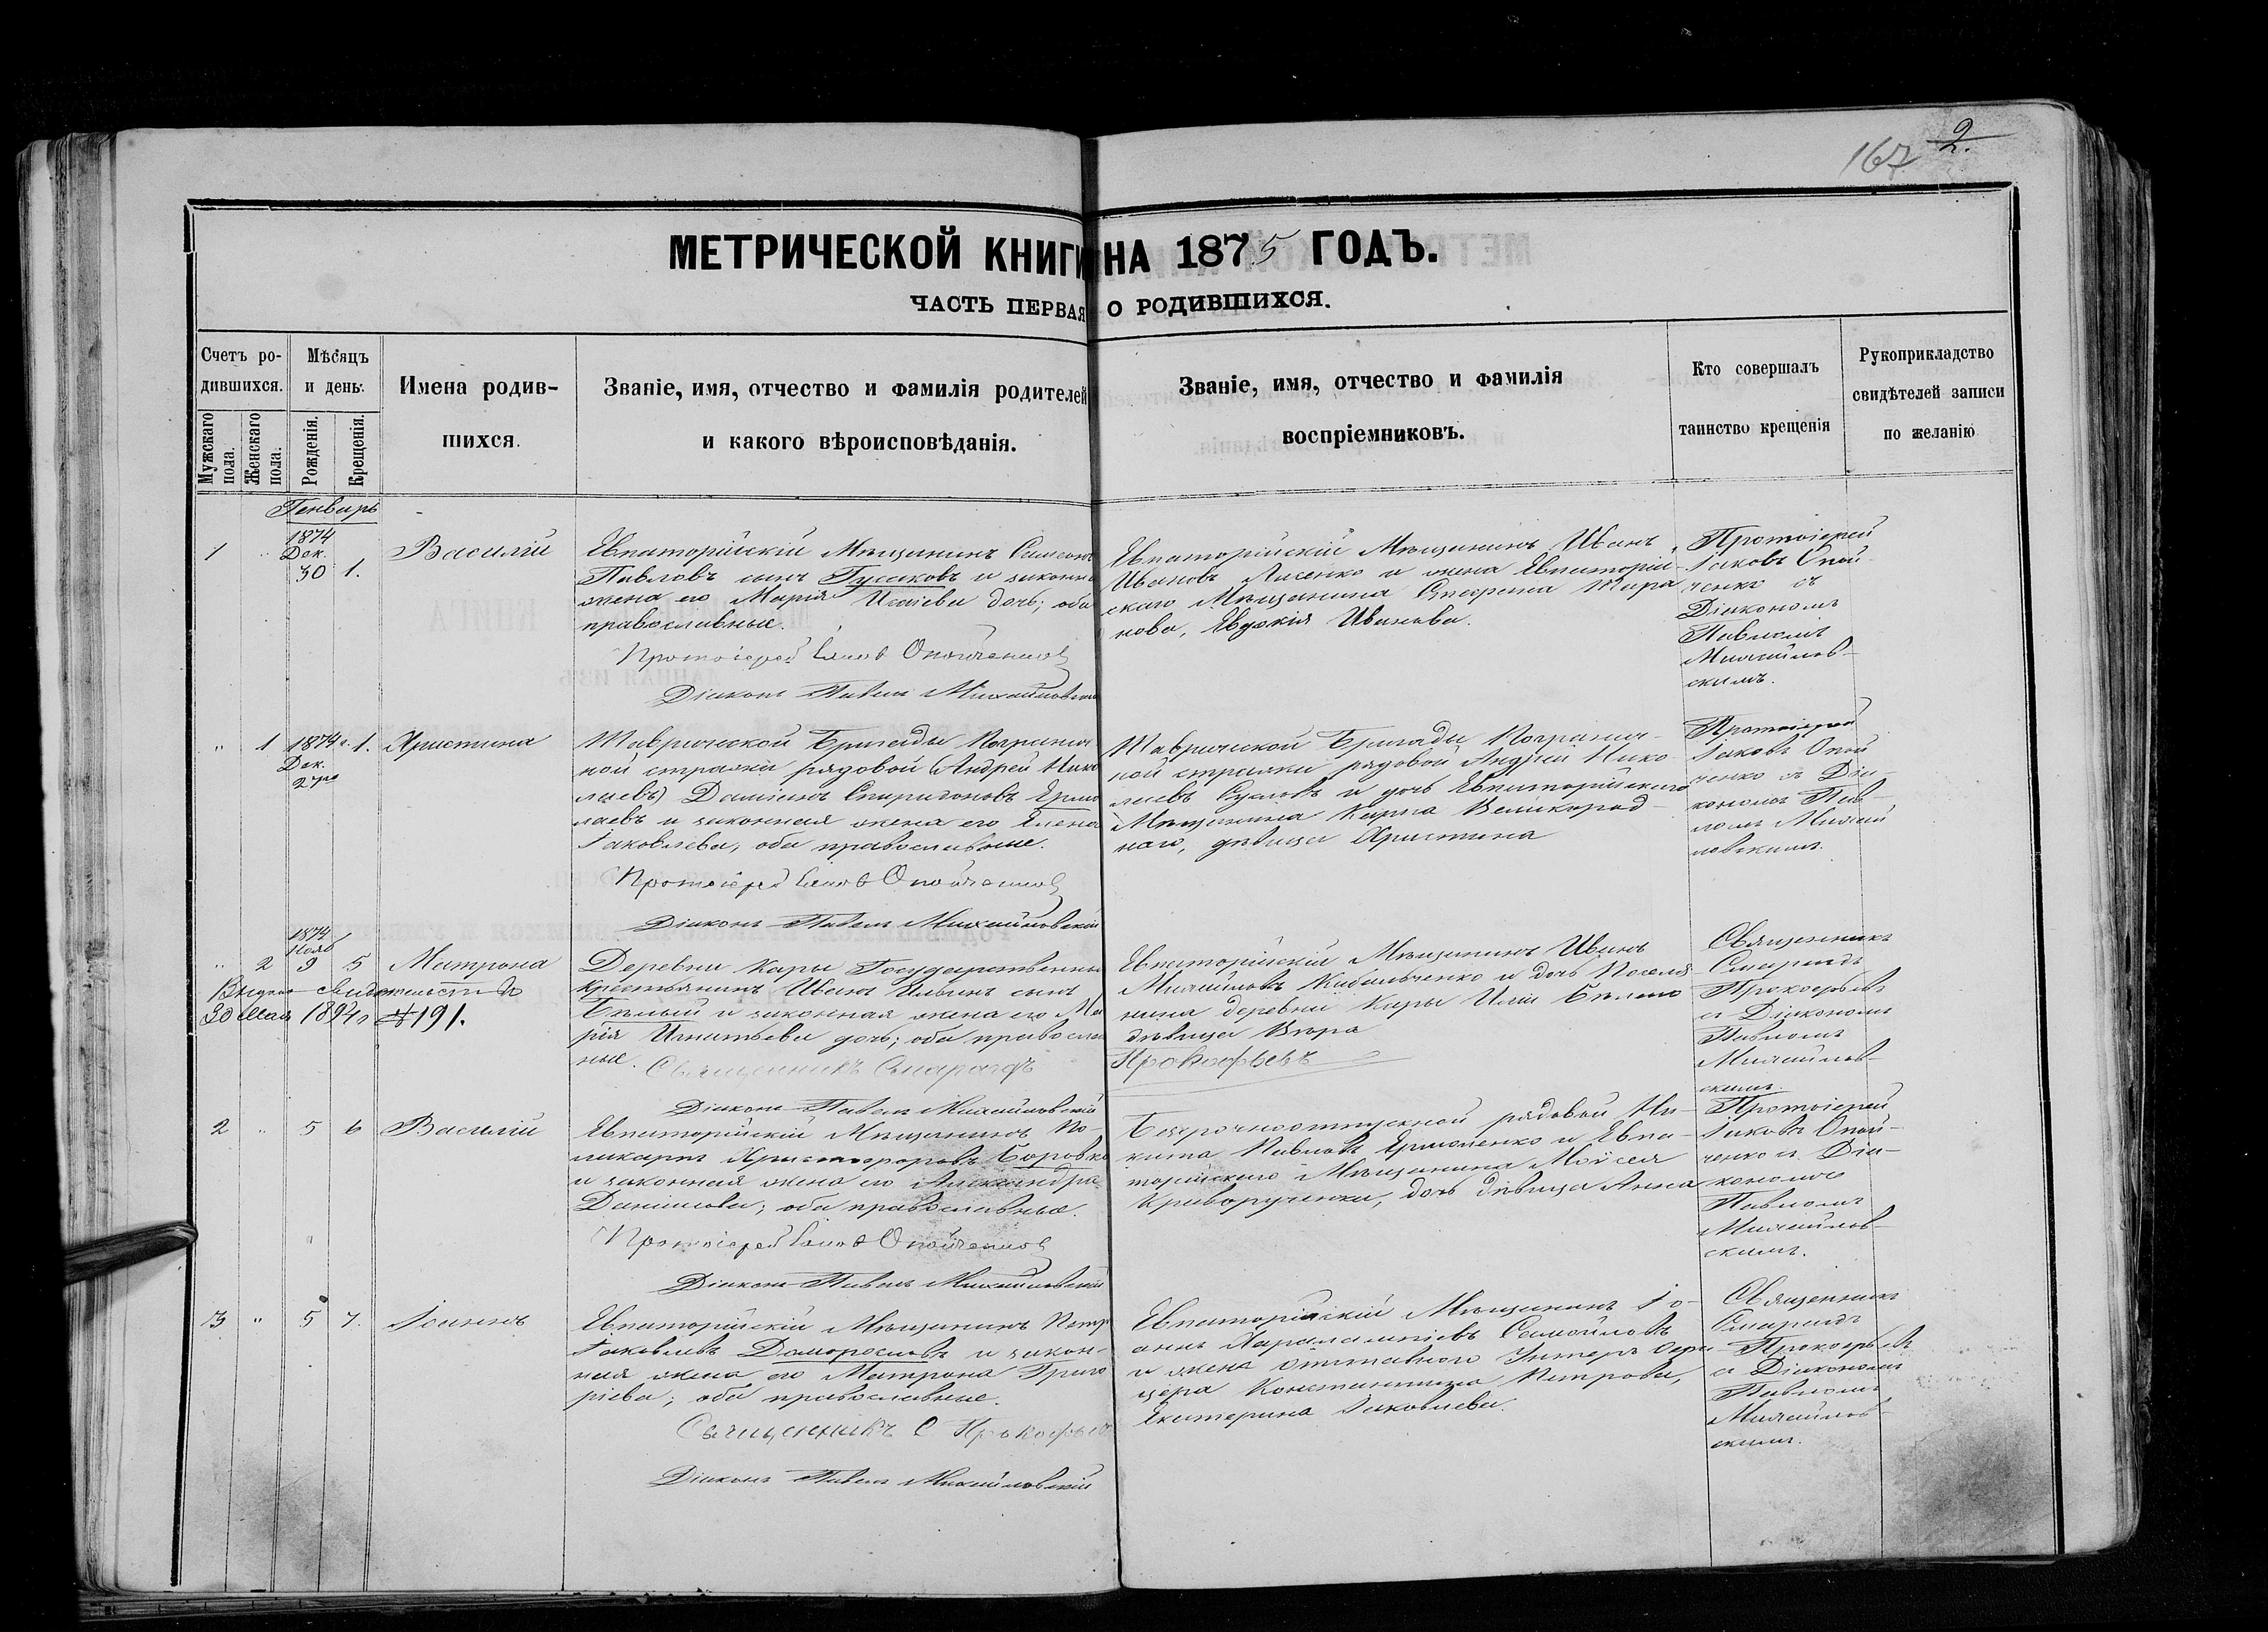 167 2.
МЕТРИЧЕСКОЙ КНИГИ НА 1875 ГОДЪ.
ЧАСТЬ ПЕРВАЯ О РОДИВШИХСЯ.
Счетъ ро-
дившихся.
Мужскаго
пола.
Женскаго
пола.
Мѣсяцъ
и день.
Рожденія.
Крещенія.
Имена родив-
шихся.
Званіе, имя, отчество и фамилія родителей
и какого вѣроисповѣданія.
Званіе, имя, отчество и фамилія
воспріемниковъ.
Кто совершалъ
таинство крещенія
Рукоприкладство
свидѣтелей записи
по желанію
Генварь
1
"
1874
Дек.
30
1.
Василій
Евпаторійскій Мѣщанинъ Самсонъ
Павловъ сынъ Гусаковъ и законна
жена его Марія Исаіева дочь; оба
православные.
Протоіерей Іаковъ Опойченков
Діаконъ Павелъ Михайловскі
Евпаторійскій Мѣщанинъ Иванъ
Ивановъ Лисенко и жена Евпаторій-
скаго Мѣщанина Стефана Тара
нова, Евдокія Иванова.
Протоіерей
Іаковъ Опой-
ченко съ
Діакономъ
Павломъ
Михайлов-
скимъ.
"
1
1874 г.
Дек.
1.
Христина
Таврической Бригады Погранич
ной стражи рядовой (Андрей Нико
лаевъ) Даміанъ Спиридоновъ Ермо
лаевъ и законная жена его Елена
Іаковлева, оба православные.
Протоіерей Іаковъ Опойченков
Діаконъ Павелъ Михайловскій
Таврической Бригады Погранич-
ной стражи рядовой Андрей Нико-
лаевъ Сусловъ и дочь Евпаторійскаго
Мѣщанина Карпа Великород-
наго, дѣвица Христина
Протоіерей
Іаковъ Опой
ченко съ Діа-
кономъ Пав-
ломъ Михай
ловскимъ.
"
2
1874
Нояб
9
5
Матрона
Выдано свидетельство
30 Мая 1894 г. №191.
Деревни Кары Государственны
крестьянинъ Иванъ Ильинъ сынъ
Бѣлый и законная жена его Ма
рія Игнатьева дочь; оба правосла
ные.
Священникъ Смарагдъ Прокофьевъ
Діаконъ Павелъ Михайловскій
Евпаторійскій Мѣщанинъ Иванъ
Михайловъ Кибальченко и дочь Поселя-
нина деревни Кары Иліи Бѣлаго
дѣвица Вѣра
Священникъ
Смарагдъ
Прокофьевъ
съ Діакономъ
Павломъ
Михайлов-
скимъ.
2
"
5
6
Василій
Евпаторійскій Мѣщанинъ По-
ликарпъ Христофоровъ Боровко
и законная жена его Александра
Даніилова; оба православные.
Протоіерей Іаковъ Опойченков
Діаконъ Павелъ Михайловскій
Безсрочноотпускной рядовой Ни-
кита Павловъ Ермоленко и Евпа-
торійскаго Мѣщанина Моѵсея
Криворученки, дочь дѣвица Анна
Протоіерей
Іаковъ Опой-
ченко съ Діа-
кономъ
Павломъ
Михайлов-
скимъ.
3
"
5
7.
Іоаннъ
Евпаторійскій Мѣщанинъ Петръ
Іаковлевъ Доморословъ и закон-
ная жена его Матрона Григо
ріева; оба православные.
Священникъ С Прокофьевъ
Діаконъ Павелъ Михайловскій
Евпаторійскій Мѣщанинъ Іо-
аннъ Харалампіевъ Самойловъ
и жена отставного Унтеръ Офи
цера Константина Петрова,
Екатерина Іаковлева.
Священникъ
Смарагдъ
Прокофьевъ
съ Діакономъ
Павломъ
Михайлов-
скимъ.